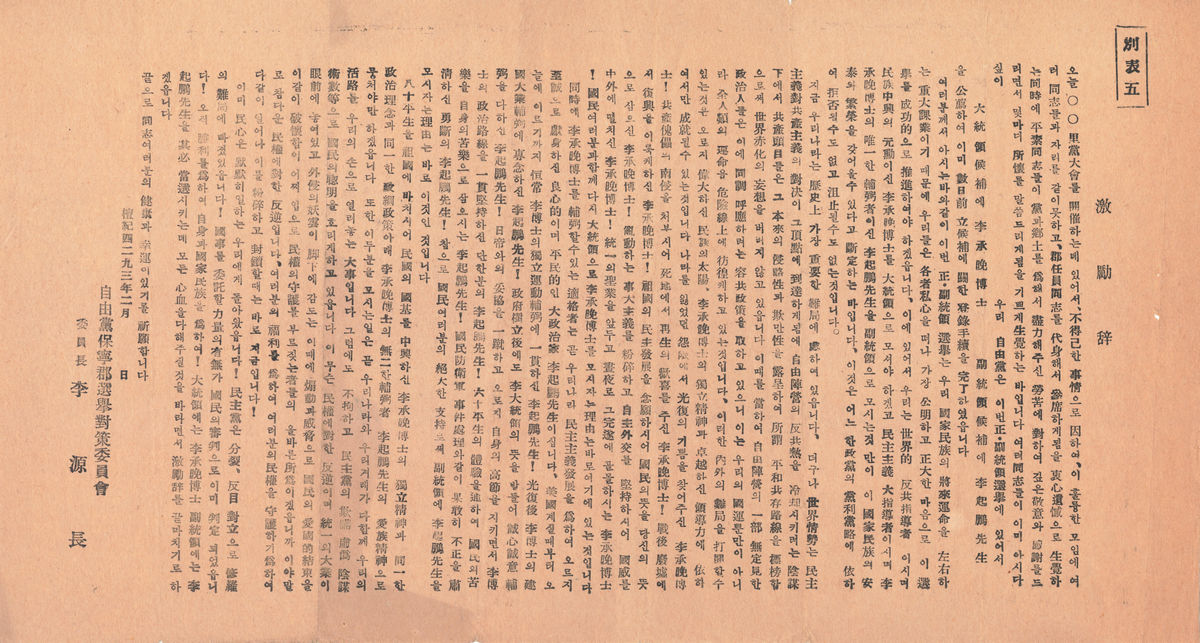 別表五
激勵辞
오늘 〇〇里黨大會를 開催하는데 있어서、不得已한 事情으로 因하여、이 훌융한 모임에 여
러 同志들과 자리를 같이못하고、郡任員同志를 代身해서 參席하게됨을 衷心遺憾으로 生覺하
는 同時에 平素同志들이 黨과鄕土를 爲해서 盡力해주신 勞苦에 對하여 깊은敬意와 感謝를드
리면서 몇마디 所懷를 말씀드리게됨을 기쁘게生覺하는 바입니다 여러同志들이 이미 아시다
싶이 우리 自由黨은 이번正·副統領選擧에 있어서
大統領候補에 李承晚博士 副統領候補에 李起鵬先生
을 公薦하여 이미 數日前 立候補에 關한 登錄手續을 完了하였읍니다
여러분께서 아시는바와같이 이번 正·副統領 選擧는 우리 國家民族의 將來運命을 左右하
는 重大課業이기 때문에 우리들은 各者私心을 떠나 가장 公明하고 正大한 마음으로 이 選
擧를 成功的으로 推進하여야 하겠읍니다、이에 있어서 우리는 世界的 反共指導者 이시며
民族中興의 元勳이신 李承晚博士를 大統領으로 모셔야 하겠고 民主主義 大指導者이시며 李
承晚博士의 唯一한 輔弼者이신 李起鵬先生을 副統領으로 모시는것 만이 이 國家民族의 安
泰와 繁榮을 갖어올수 있다고 斷定하는 바입니다、이것은 어느 한政黨의 黨利黨略에 依하
여 拒否될수도 없고 沮止될수도없는 것입니다。
지금 우리나라는 歷史上 가장 重要한 難局에 處하여 있읍니다、더구나 世界情勢는 民主
主義對共產主義의 對決이 그頂點에 到達하게됨에 自由陣營의 反共熱을 冷却시키려는 陰謀
下에서 共產頭目들은 그 本來의 侵略性과 欺瞞性을 露呈하여 所謂 平和共存路線을 標榜함
으로써 世界赤化의 妄想을 버리지 않고 있읍니다 이때를 當하여 自由陣營의 一部 無定見한
政治人들은 이에 同調 呼應하려는 容共政策을 取하고 있으니 이는 우리의 國運뿐만이 아니
라 全人類의 運命을 危險線上에 彷徨케하고 있는것입니다 이러한 內外의 難局을 打開할수
있는것은 오로지 偉大하신 民族의太陽、李承晚博士의 獨立精神과 卓越하신 領導力에 依하
여서만 成就될수 있는 것입니다 나라를 잃었던 怨恨에서 光復의기쁨을 찾어주신 李承晚博
士! 共產傀儡의 南侵을 처부시어 死地에서 再生의歡喜를 주신 李承晚博士! 戰後 廢墟에
서 復興을 이룩케하신 李承晚博士! 祖國의 民主發展을 念願하시어 國民의뜻을 당신의 뜻
으로 삼으신 李承晚博士! 亂動하는 事大主義를 粉碎하고 自主外交를 堅持하시어 國威를
中外에 떨치신 李承晚博士! 統一의 聖業을 앞두고 晝夜로 그完遂에 골몰하시는 李承晚博士
! 國民여러분과함께 다시 大統領으로 李承晚博士를 모시자는理由는 바로여기에 있는것입니다
同時에 李承晚博士를 輔弼할수있는 適格者는 곧 우리나라 民主主義發展을 爲하여 오르지
至誠으로 獻身하신 良心的이며 平民的인 大政治家 李起鵬先生이십니다、美國계실때부터 오
늘에 이르기까지 恒常 李博士의獨立運動輔弼에 一貫하신 李起鵬先生! 光復後 李博士의 建
國大業輔弼에 專念하신 李起鵬先生! 政府樹立後에도 李大統領의 뜻을 받들어 誠心誠意 輔
弼을 다하신 李起鵬先生! 日帝와의 妥協을 一蹴하고 오로지 自身의 高節을 지키면서 李博
士의 政治路線을 一貫堅持하신 단한분의 李起鵬先生! 六十平生의 體驗을通하여 國民의苦
樂을 自身의苦樂으로 삼으시는 李起鵬先生! 國民防衛軍 事件處理와같이 果敢히 不正을 肅
清하신 勇斷의 李起鵬先生! 참으로 國民여러분의 絶大한 支持로써 副統領에 李起鵬先生을
모시자는理由는 바로 이것인 것입니다
八十平生을 祖國에 바쳐서어 民國의 國基를 中興하신 李承晚博士의 獨立精神과 同一한
政治理念과 同一한 政綱政策아래 李承晚博士의 無二한輔弼者 李起鵬先生의 愛族精神으로
뭉처야만 하겠읍니다 또한 이두분을 모시는일은 곧 우리나라와 우리겨레가 다함께 우리의
活路를 우리의 손으로 열리놓는 大事입니다 그럼에도 不拘하고 民主黨의 欺瞞、虛僞、陰謀
術數等으로 國民의聰明을 흐리게하고 있읍니다、民權을 부르짖는者들의 올바른 所爲이겠읍니까 이야말
眼前에 놓여있고 外侵의妖雲이 脚下에 감도는 이때에 煽動과威脅으로 國民의 愛國的結束을
이같이 破壞함이 어찌 입으로民權의守護를 부르짖는者들의 올바른所爲이겠읍니까 이야말
로 참다운 民權에對한 反逆입니다、여러분의 福利를 爲하여 여러분의民權을 守護하기爲하여
다같이 일어나 이를 粉碎하고 封鎖할때는 바로 지금입니다!
이미 民心은 默默히일하는 우리에게 돌아왔읍니다! 民主黨은 分裂、反目 對立으로 修羅
의 難局에 바졌있읍니다! 國事를 委託할力量의有無가 國民의審判으로 이미 判定 되었읍니
다! 오직 勝利를爲하여 自身과國家民族을 爲하여! 大統領에는 李承晚博士 副統領에는 李
起鵬先生을 其必 當選시키는데 모든 心血을다해주실것을 바라면서 激勵辭를 끝마치기로 하
겠읍니다
끝으로 同志여러분의 健康과 幸運이있기를 祈願합니다
檀紀四二九三年二月 日
自由黨保寧郡選擧對策委員會
委員長 李源長